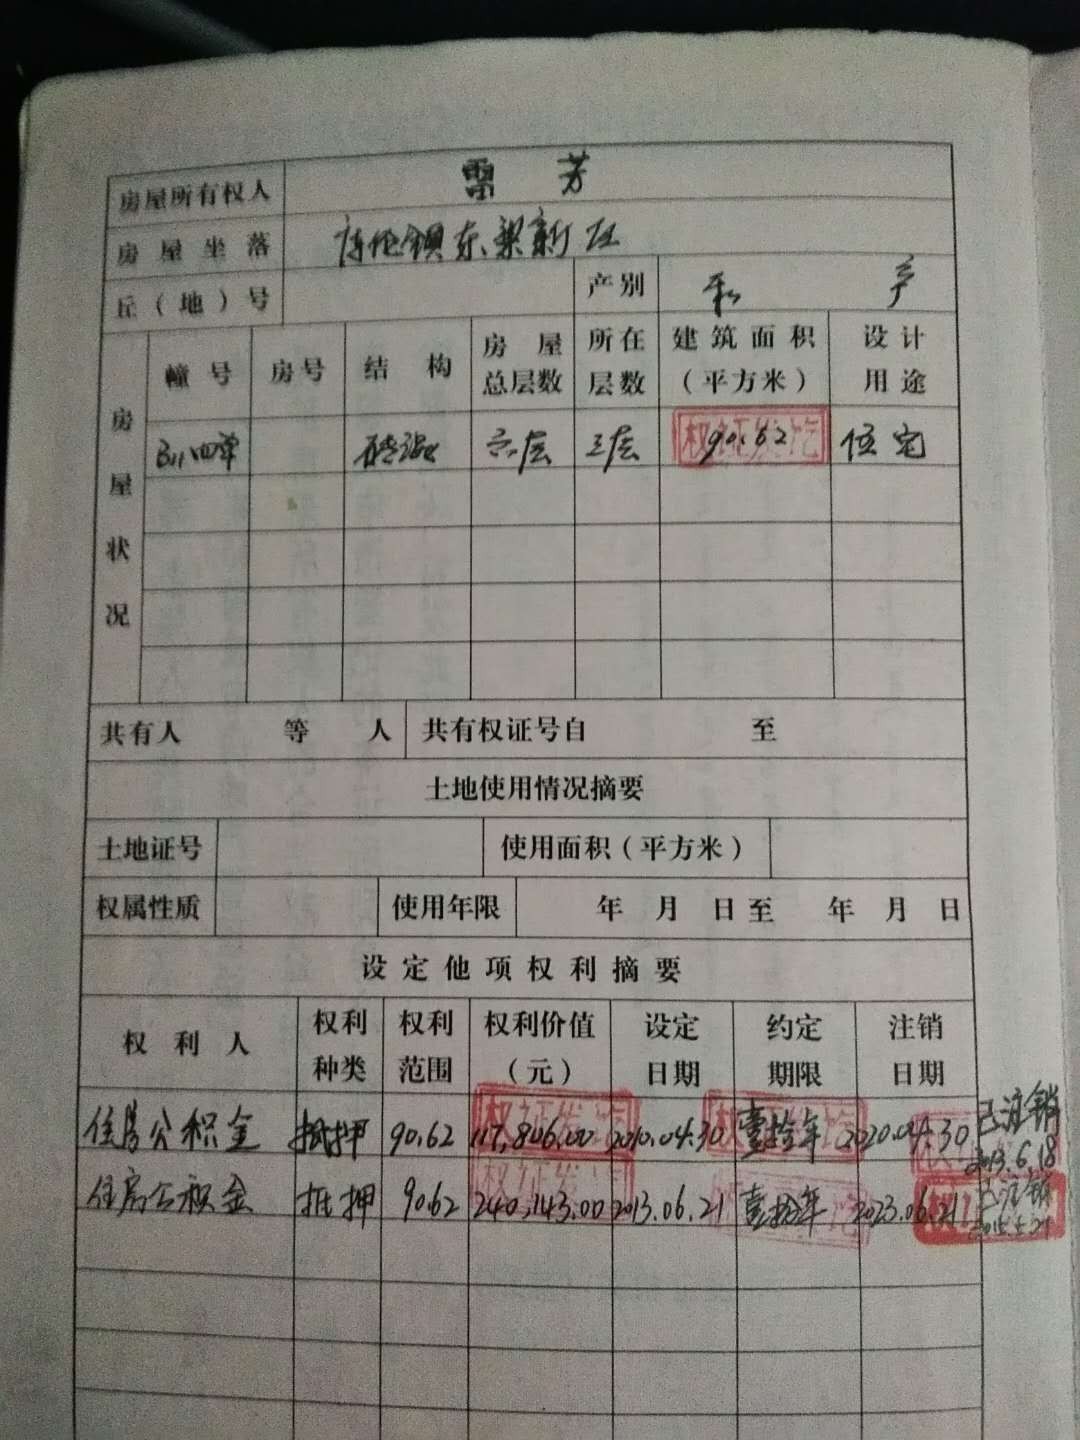 房屋所有权人 雷芳
房屋坐落 镇东梁新区
丘（地）号 产别 私产
房屋状况
幢号 房号 结构 房屋总层数 所在层数 建筑面积（平方米） 设计用途
六层 三层 90.62 住宅
共有人 等 人 共有权证号自 至
土地使用情况摘要
土地证号 使用面积（平方米）
权属性质 使用年限 年 月 日至 年 月 日
设定他项权利摘要
权利人 权利种类 权利范围 权利价值（元） 设定日期 约定期限 注销日期
住房公积金 抵押 90.62 117,806.00 2010.04.30 壹拾年 2020.04.30 已注销
2013.6.18
住房公积金 抵押 90.62 240,143.00 2013.06.21 壹拾年 2023.06.21 已注销